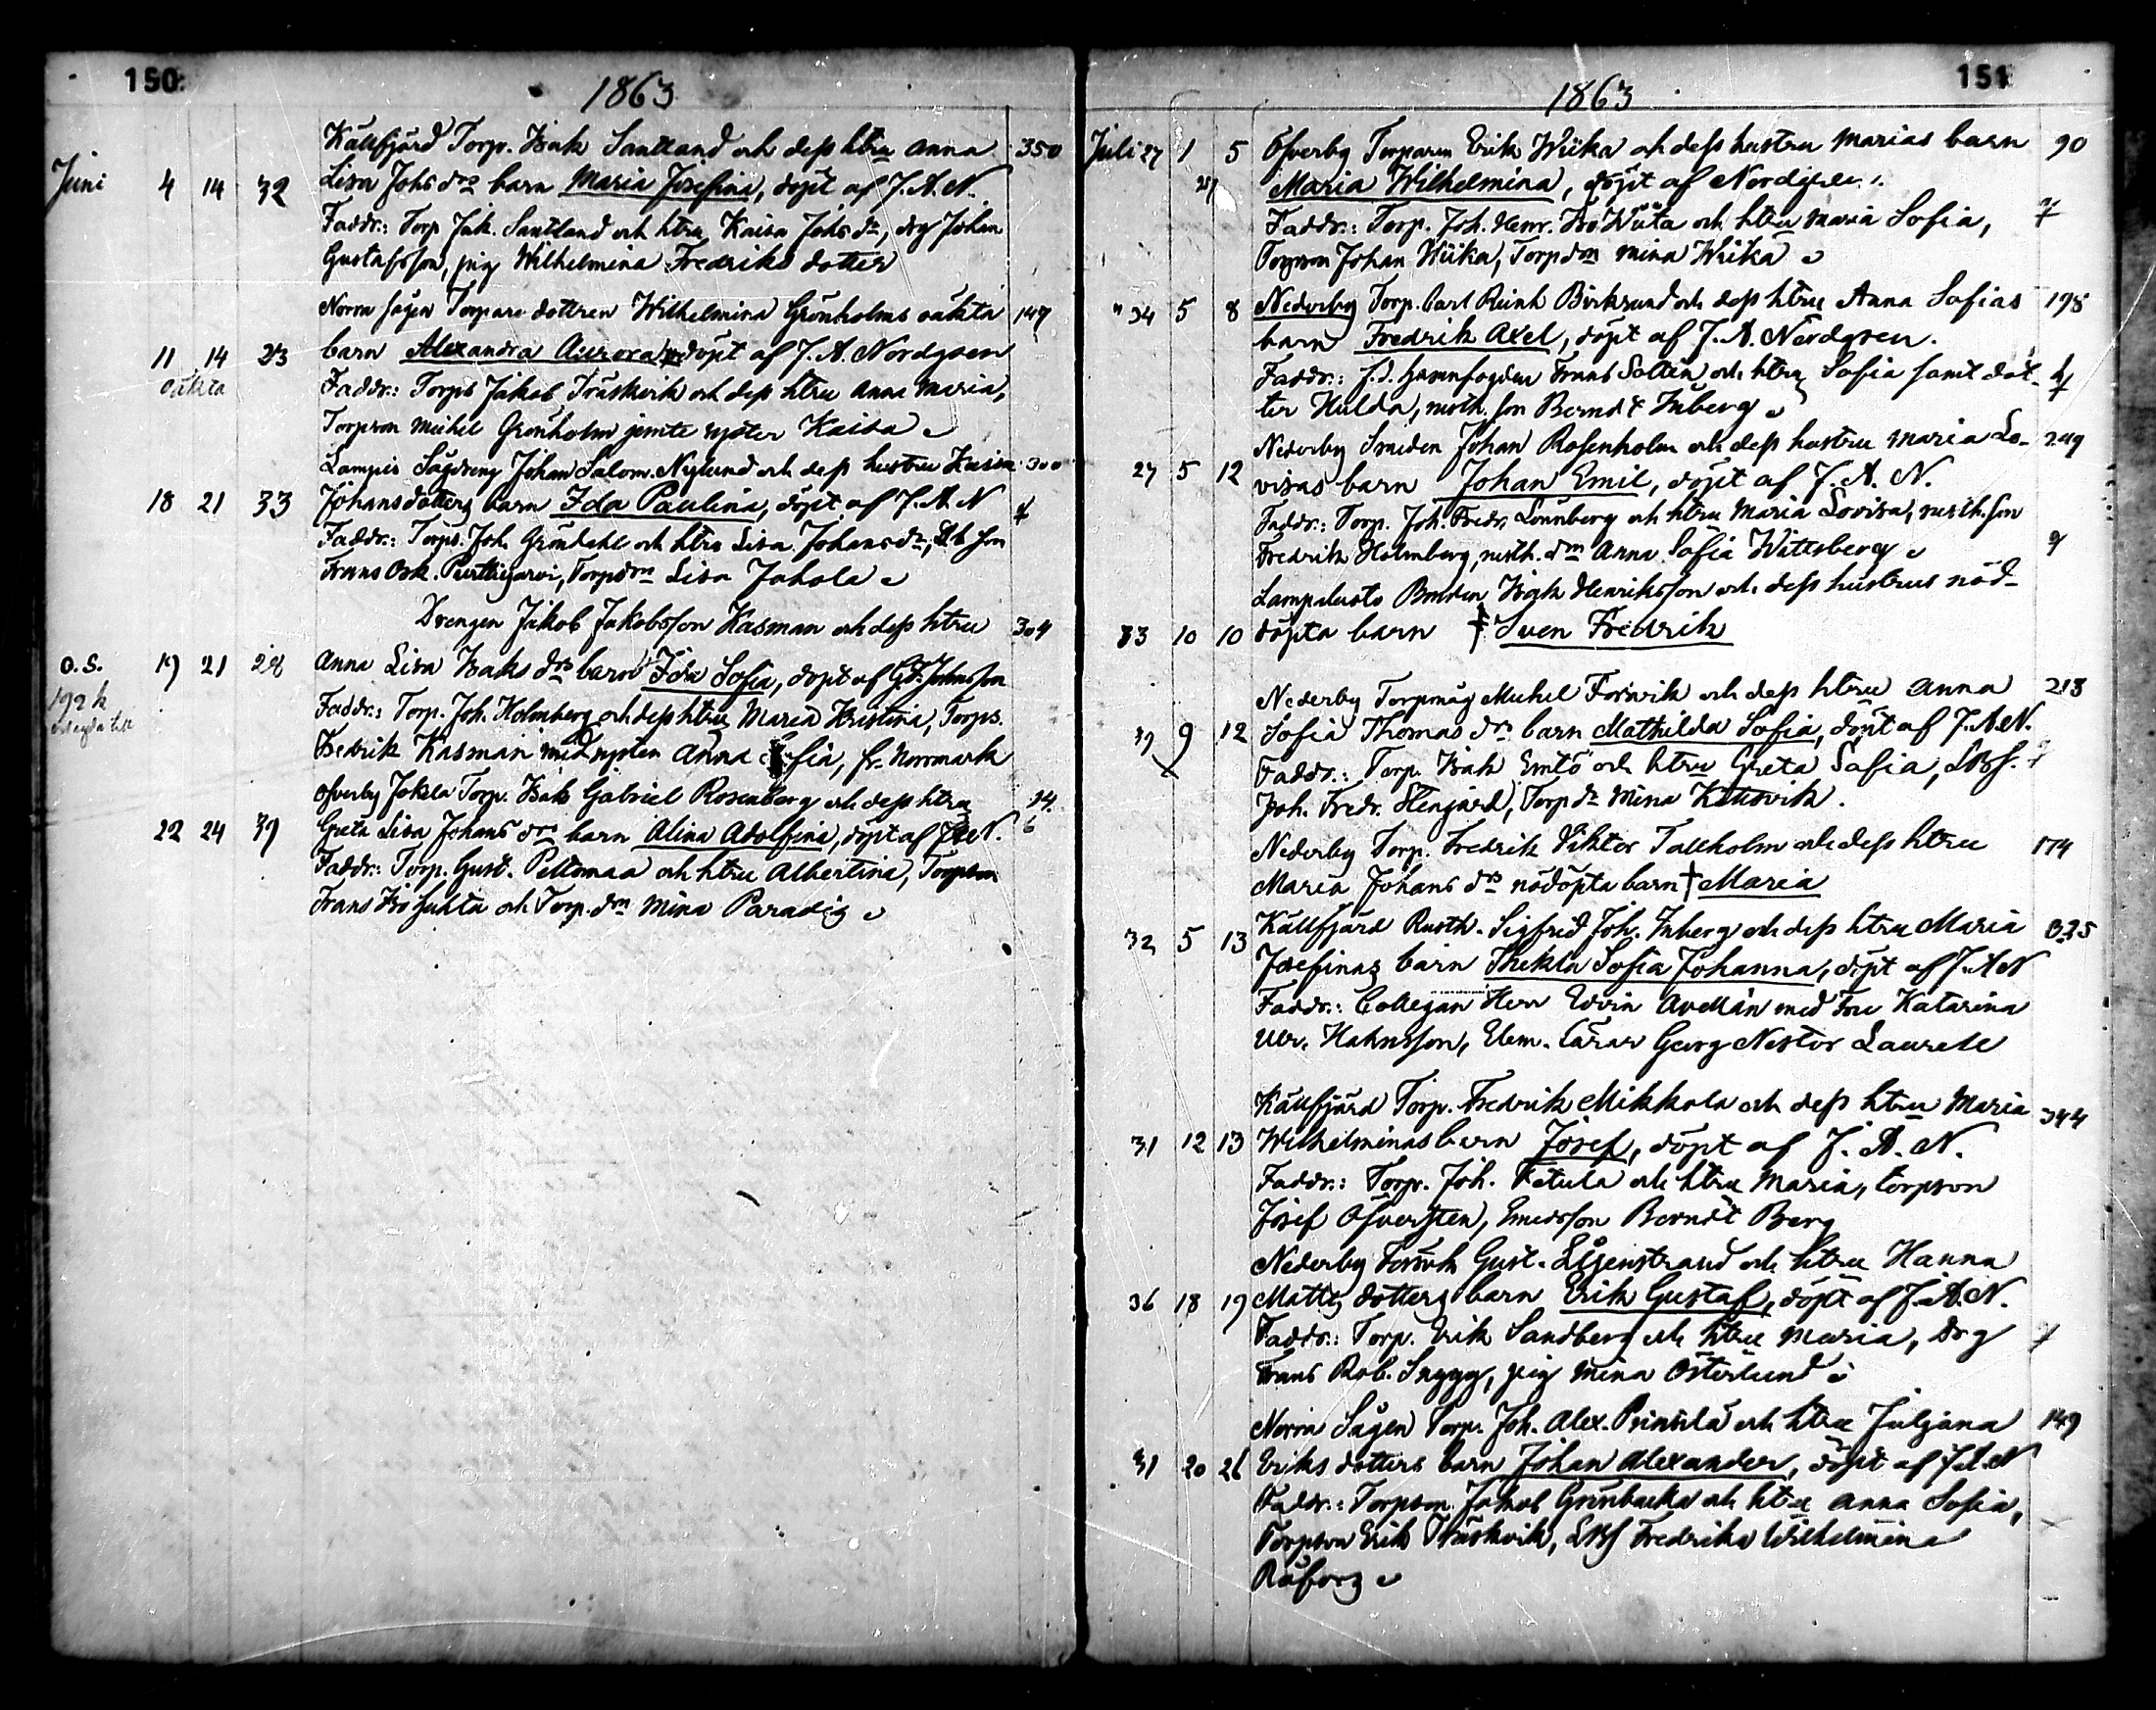 150.
1863
Källfjärd Torp. Isak Santland och dess htru Anna 350
Juni 4 14 32 Lisa Johs drs barn Maria Josefina, döpt af J. A. N.
Faddr.: Torp Jak. Santland och htru Kaisa Johs dr, drg Johan
Gustafsson, pig Wilhelmina Fredriks dotter
Norra sågen Torpare dottren Wilhelmina Grönholms oäkta 149
11 14 23 barn Alexandra Aurora döpt af J. A. Nordgren
oäkta Faddr.: Torps Jakob Träskvik och dess htru Anna Maria,
Torpson Mickel Grönholm jemte syster Kaisa
Lampis Sågdreng Johan Salom. Nylund och dess hustru Kaisa 300
18 21 33 Johansdotters barn Ida Paulina, döpt af J. A. N
Faddr.: Torps. Joh. Gröndahl och htru Lisa Johansdr, son
Frans Osk. Torpdrn Lisa Jahola
Drengen Jakob Jakobsson Kasman och dess htru 304
o.S. 19 21 28 Anna Lisa Isaks drs barn Ida Sofia, döpt af Johnsson
192 k
Faddr.: Torp. Joh. Holmberg och dess htru Maria Kristina, Torps.
Fredrik Kasman med Anna fia, fr. Norrmark
Öfverby Jokela Torp. Isak Gabriel Rosenberg och dess htru 14.
22 24 39 Greta Lisa Johans drs barn Alina Adolfina, döpt af J.A.N. 6
Faddr.: Torp. Gust. Peltomaa och htru Albertina, Torpson
Frans Iso Juhta och Torp. drn Mina Paradis
151
1863
Juli 27 1 5 Öfverby Torparen Erik Wiika och dess hustru Marias barn 90
Maria Wilhelmina, döpt af Nordgren
Faddr.: Torp. Joh. Henr. Iso Wiita och htru Maria Sofia,
Torpson Johan Wiika, Torpdrn Mina Wiika
" 34 5 8 Nederby Torp. Carl Reinh Birksund och dess htru Anna Sofias 198
barn Fredrik Axel, döpt af J. A. Nordgren.
Faddr.: f.d. Hamnfogden Frans Soltin och htru Sofia samt dot-
ter Hulda, rusth. son Berndt Inberg
Nederby Smeden Johan Rosenholm och dess hustru Maria Lo- 249
27 5 12 visas barn Johan Emil, döpt af J. A. N.
Faddr.: Torp. Joh. Fredr. Lönnberg och htru Maria Lovisa, rusth. son
Fredrik Holmberg, rusth. drn Anna Sofia Wittsberg
Lampaluoto Bonden Isak Henriksson och dess hustrus nöd-
33 10 10 döpta barn † Sven Fredrik
Nederby Torpmåg Mickel Forsvik och dess htru Anna 213
39 9 12 Sofia Thomas drs barn Mathilda Sofia, döpt af J. A. N.
Faddr.: Torp. Isak Emtö och htru Greta Sofia,
Joh. Fredr. Stengård, Torp dr Mina
Nederby Torp. Fredrik Viktor Tallholm och dess htru 174
Maria Johans drs nödöpta barn † Maria
Källfjärd Rusth. Sigfrid Joh. Inberg och dess htru Maria 335
32 5 13 Josefinas barn Thekla Sofia Johanna, döpt af J. A N
Faddr.: Collegan Herr Edvin Avellàn med Fru Katarina
Ulr. Hahnsson, Elem. Lärar Georg Nestor Laurell
Källfjärd Torp. Fredrik Mikkola och dess htru Maria 344
31 12 13 Wilhelminas barn Josef, döpt af J. A. N.
Faddr.: Torp. Joh. Fetula och htru Maria, torpson
Josef Öfversten, Smedsson Berndt Berg
Nederby Gust. Liljenstrand och htru Hanna
36 18 19 Matts dotters barn Erik Gustaf, döpt af J. A. N.
Faddr.: Torp. Erik Sandberg och htru Maria, drg
Frans Rob. Snygg, pig Mina Österlund
Norra Sågen Torp. Joh. Alex. och htru Juljana 149
31 20 26 Eriks dotters barn Johan Alexander, döpt af J.A.N
Faddr.: Torpson Jakob Grönbacka och htru Anna Sofia,
Torpson Erik Träskvik, Fredrika Wilhelmina
Råforz